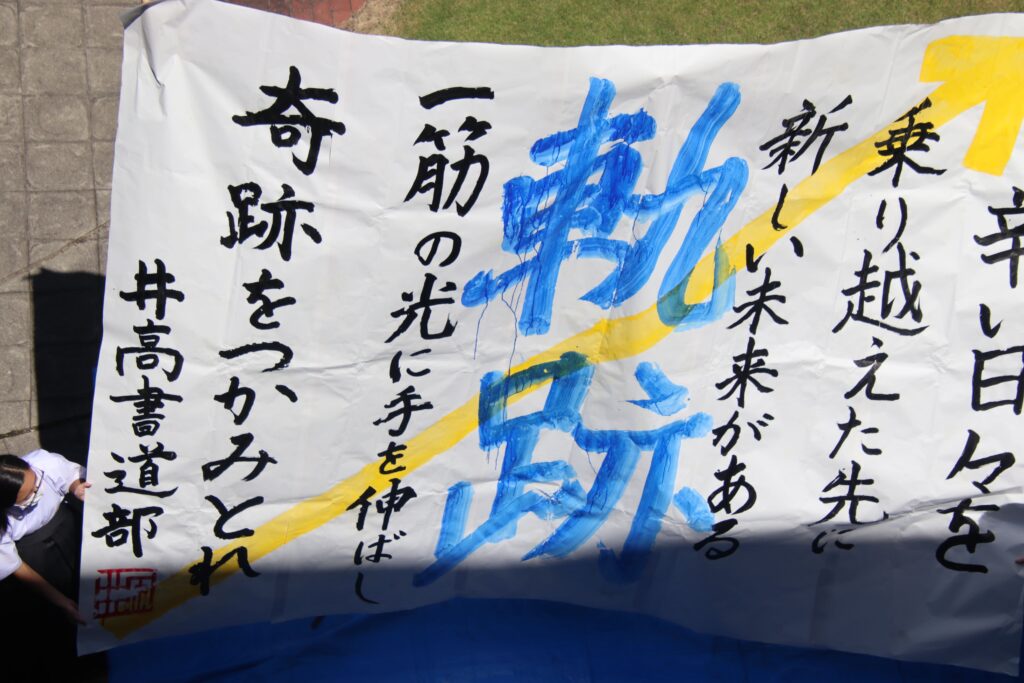 辛い日々を
乗り越えた先に
新しい未来がある
軌跡
一筋の光に手を伸ばし
奇跡をつかみとれ
井高書道部